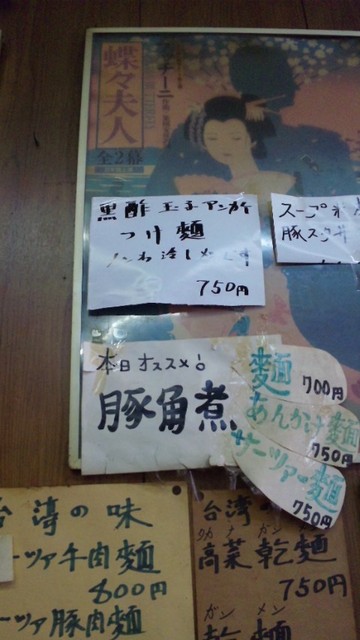 蝶々夫人
全2幕
黒酢玉子アンカケ
つけ麺
750円
スープ
豚スタ
本日オススメ!○
豚角煮
麺
700円
あんかけ麺
750円
サーツァー麺
750円
台湾の味
ーツァ牛肉麺
800円
ーツァ豚肉麺
台湾の
高菜乾麺
750円
ガンメン
乾麺